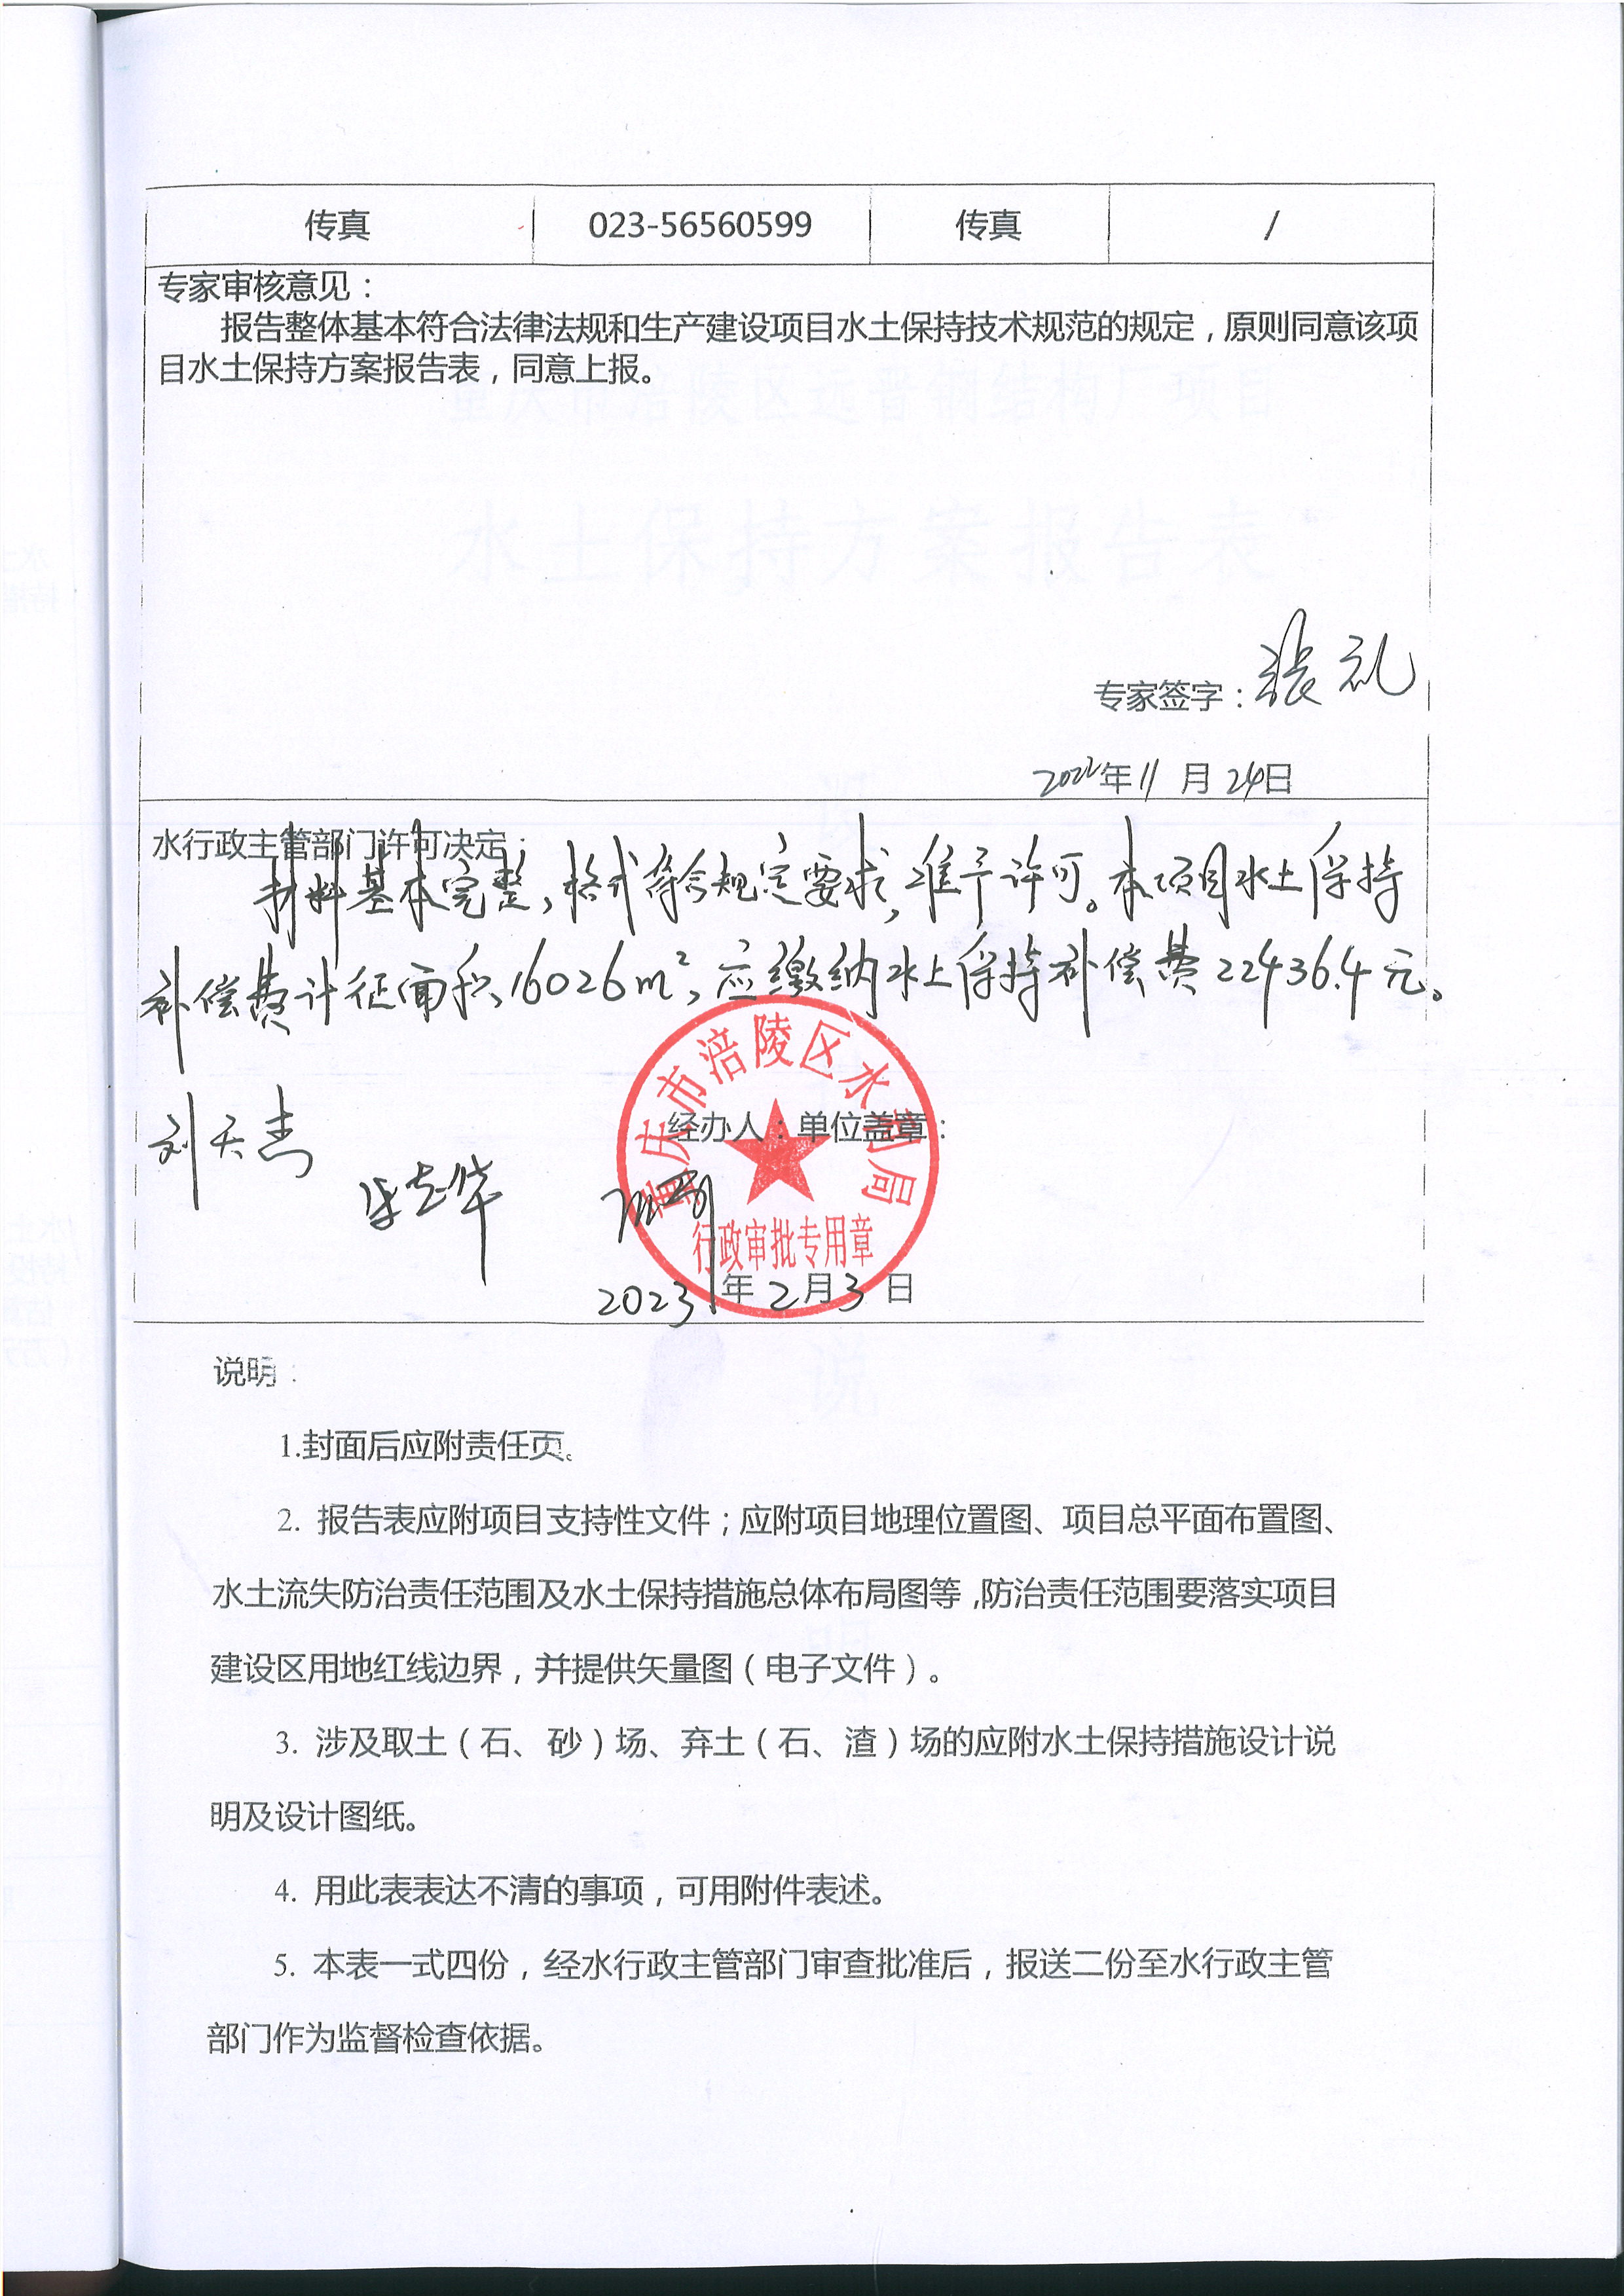 传真 023-56560599 传真 /
专家审核意见：
报告整体基本符合法律法规和生产建设项目水土保持技术规范的规定，原则同意该项
目水土保持方案报告表，同意上报。
专家签字：张礼
2022年11月24日
水行政主管部门许可决定：
材料基本完整，格式符合规定要求，准予许可。本项目水土保持
补偿费计征面积16026m²，应缴纳水土保持补偿费22436.4元。
重庆市涪陵区水利局
经办人：单位盖章：
刘天杰
行政审批专用章
2023年2月3日
说明：
1.封面后应附责任页。
2. 报告表应附项目支持性文件；应附项目地理位置图、项目总平面布置图、
水土流失防治责任范围及水土保持措施总体布局图等，防治责任范围要落实项目
建设区用地红线边界，并提供矢量图（电子文件）。
3. 涉及取土（石、砂）场、弃土（石、渣）场的应附水土保持措施设计说
明及设计图纸。
4. 用此表表达不清的事项，可用附件表述。
5. 本表一式四份，经水行政主管部门审查批准后，报送二份至水行政主管
部门作为监督检查依据。